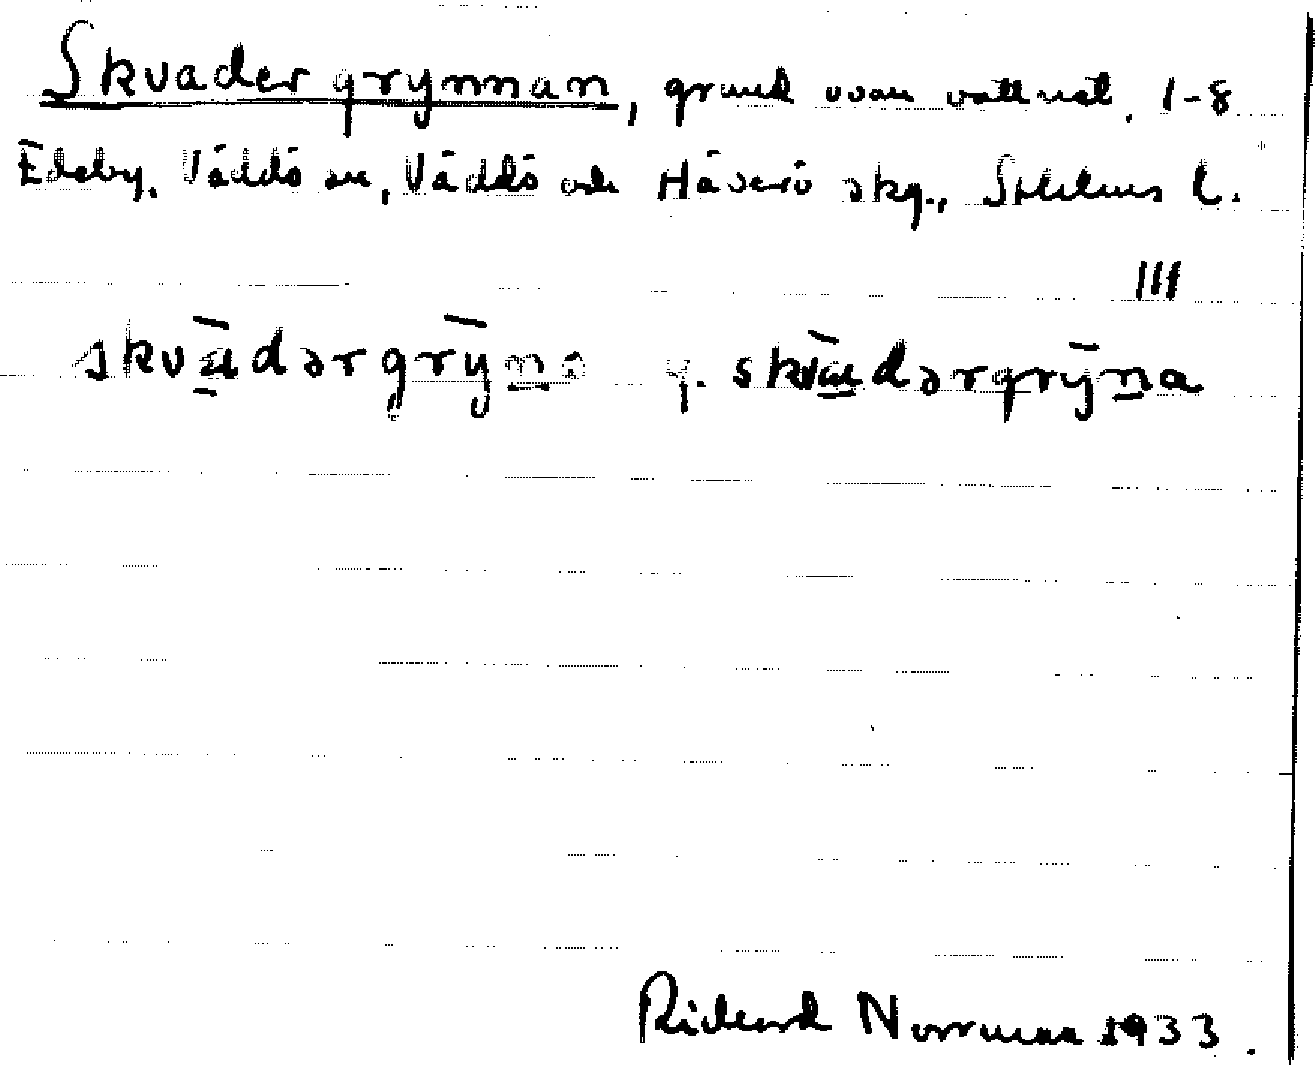 Skvadergrynnan, grund ovan vattnet. 1-8
Edeby, Väddö sn, Väddö och Häverö skg., Sthlms l.
III
skvā̱dərgrȳṉa y. skvā̱dərgrȳṉa
Rickard Norrman 1933.